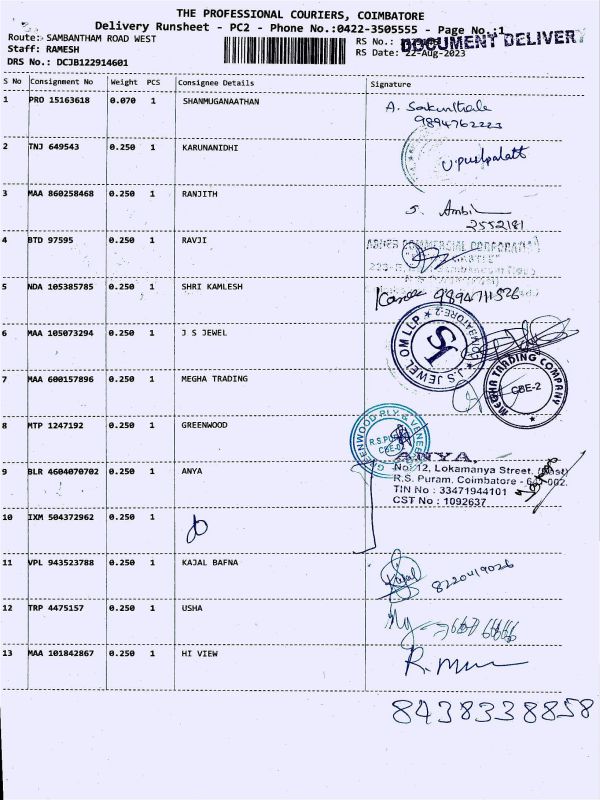 THE PROFESSIONAL COURIERS, COIMBATORE
Delivery Runsheet - PC2 - Phone No.:0422-3505555 - Page No.:1
Route: SAMBANTHAM ROAD WEST
Staff: RAMESH
DRS No.: DCJB122914601
RS No.:
DOCUMENT DELIVERY
RS Date: 22-Aug-2023
S No Consignment No Weight PCS Consignee Details Signature
1 PRO 15163618 0.070 1 SHANMUGANAATHAN
A. Sakunthale
9894762223
2 TNJ 649543 0.250 1 KARUNANIDHI
3 MAA 860258468 0.250 1 RANJITH
S. Ambi
2552181
4 BTD 97595 0.250 1 RAVJI
5 NDA 105385785 0.250 1 SHRI KAMLESH
9894711526
6 MAA 105073294 0.250 1 J S JEWEL
J.S. JEWEL OM LLP
7 MAA 600157896 0.250 1 MEGHA TRADING
MEGHA TRADING COMPANY
CBE-2
8 MTP 1247192 0.250 1 GREENWOOD
GREENWOOD PLY &
9 BLR 4604070702 0.250 1 ANYA
ANYA,
No: 12, Lokamanya Street, (East)
R.S. Puram, Coimbatore - 641 002.
TIN No : 33471944101
CST No : 1092637
10 IXM 504372962 0.250 1
11 VPL 943523788 0.250 1 KAJAL BAFNA
Kajal 8220419026
12 TRP 4475157 0.250 1 USHA
13 MAA 101842867 0.250 1 HI VIEW
8438338858